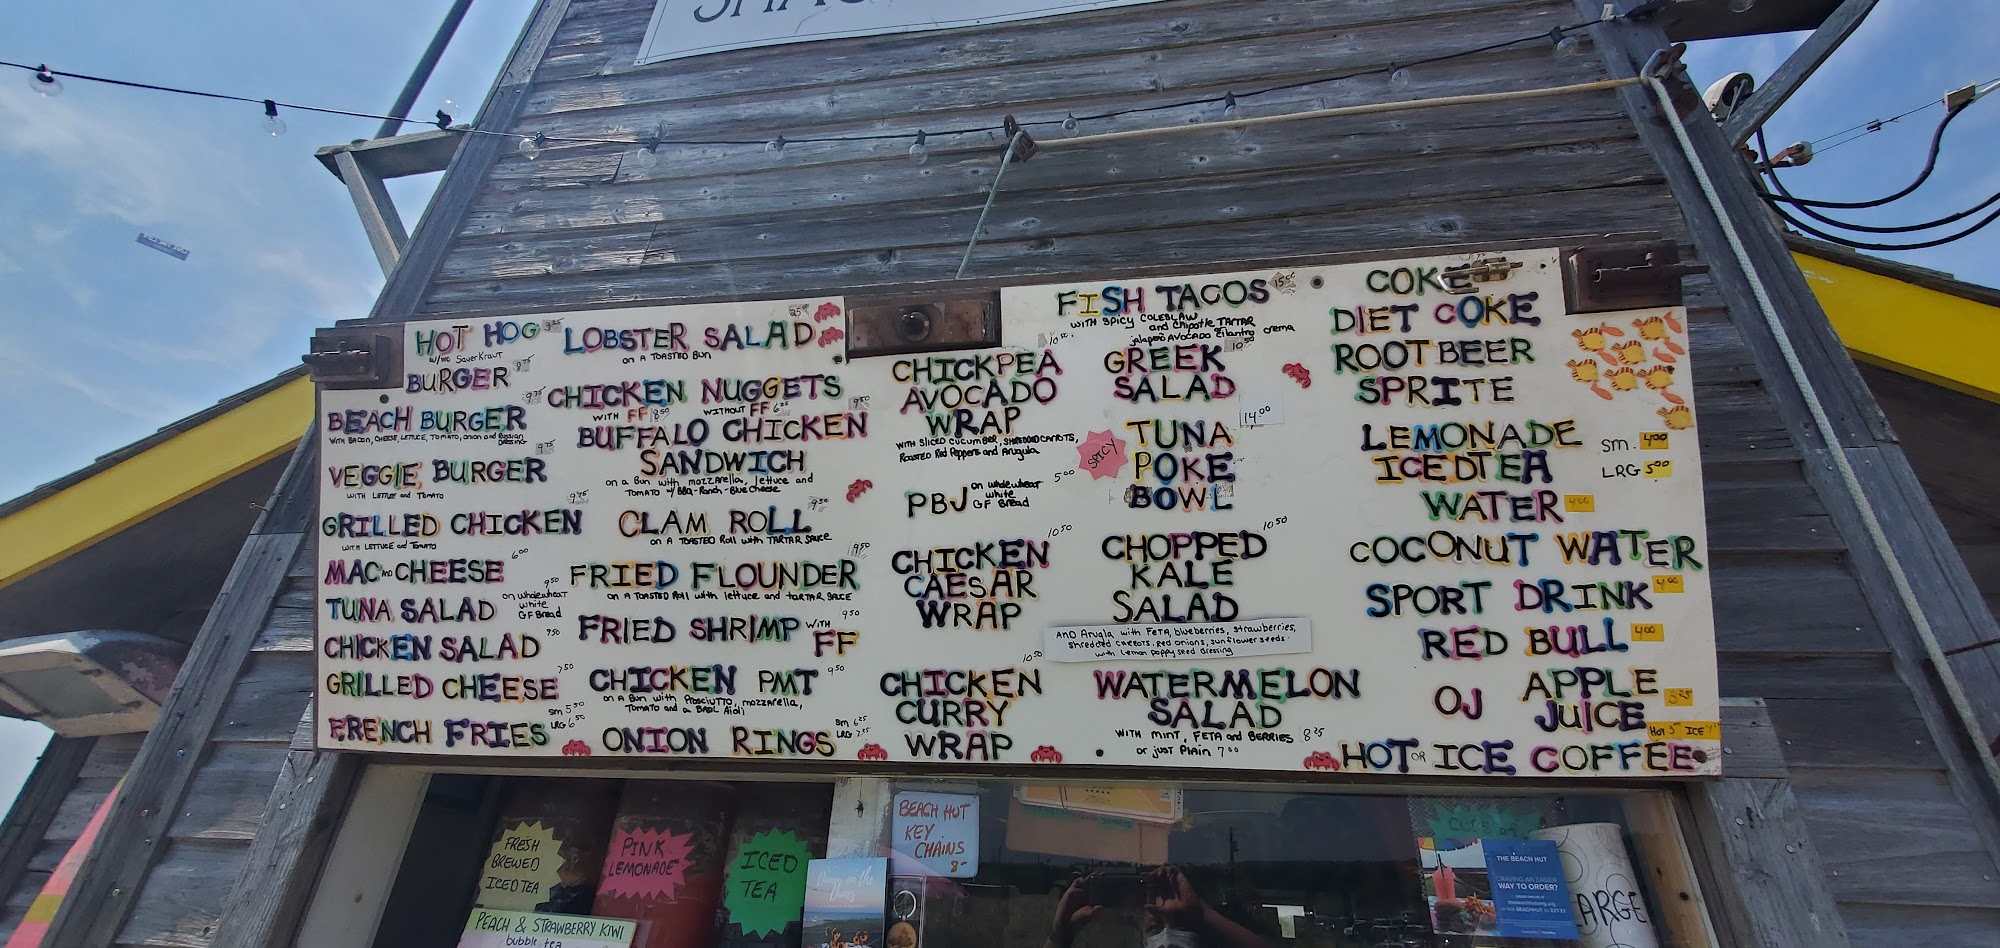 HOT HOG
w/ SauerKraut
BURGER
BEACH BURGER 9.75
WITH BACON, CHEESE, LETTUCE, TOMATO, onion and Russian Dressing
VEGGIE BURGER 9.75
WITH LETTUCE and TOMATO
GRILLED CHICKEN 9.75
WITH LETTUCE and TOMATO
MAC AND CHEESE 6.00
TUNA SALAD 9.50
on wholewheat
white
GF Bread
CHICKEN SALAD 9.50
GRILLED CHEESE 7.50
FRENCH FRIES
sm 5.50
LRG 6.50
LOBSTER SALAD
on a TOASTED Bun
CHICKEN NUGGETS
WITH FF 8.50 WITHOUT FF
BUFFALO CHICKEN
SANDWICH
on a Bun with mozzarella, lettuce and
Tomato w/ BBQ-Ranch-Blue Cheese
CLAM ROLL 9.50
on a TOASTED Roll with TARTAR SAUCE
FRIED FLOUNDER 9.50
on a TOASTED Roll with lettuce and TARTAR SAUCE
FRIED SHRIMP WITH
FF 9.50
CHICKEN PMT 9.50
on a Bun with Prosciutto, mozzarella,
Tomato and a BASIL Aioli
ONION RINGS
sm 6.25
LRG 7.25
CHICKPEA
AVOCADO
WRAP
WITH SLICED CUCUMBER, SHREDDED CARROTS,
ROASTED Red Peppers and Arugula
PBJ 5.00
on wholewheat
white
GF Bread
CHICKEN 10.50
CAESAR
WRAP
CHICKEN 10.50
CURRY
WRAP
FISH TACOS 15.50
WITH SPICY COLESLAW
and Chipotle TARTAR
jalapeño AVOCADO Cilantro crema
GREEK 10.50
SALAD
SPICY
TUNA 14.00
POKE
BOWL
CHOPPED 10.50
KALE
SALAD
AND Arugla with FETA, blueberries, strawberries,
shredded carrots, Red onions, sunflower seeds.
with Lemon poppy seed dressing
WATERMELON
SALAD
WITH MINT, FETA and BERRIES 8.25
or just Plain 7.00
COKE
DIET COKE
ROOT BEER
SPRITE
LEMONADE
ICED TEA
SM. 4.00
LRG 5.00
WATER
COCONUT WATER
SPORT DRINK 4.00
RED BULL 4.00
OJ
APPLE
JUICE
HOT OR ICE COFFEE
FRESH
BREWED
ICED TEA
PINK
LEMONADE
ICED
TEA
PEACH & STRAWBERRY KIWI
bubble tea
BEACH HUT
KEY
CHAINS
8-
THE BEACH HUT
CRAVING AN EASIER
WAY TO ORDER?
ARGE